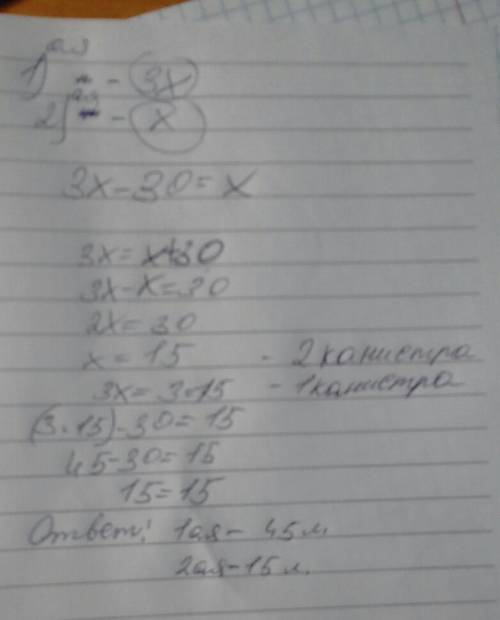 1) ая - 3x
2) ая - x
3x-30=x
3x=x+30
3x-x=30
2x=30
x=15 - 2 канистра
3x=3·15 - 1 канистра
(3·15)-30=15
45-30=15
15=15
Ответ: 1ая- 45л.
2ая-15л.